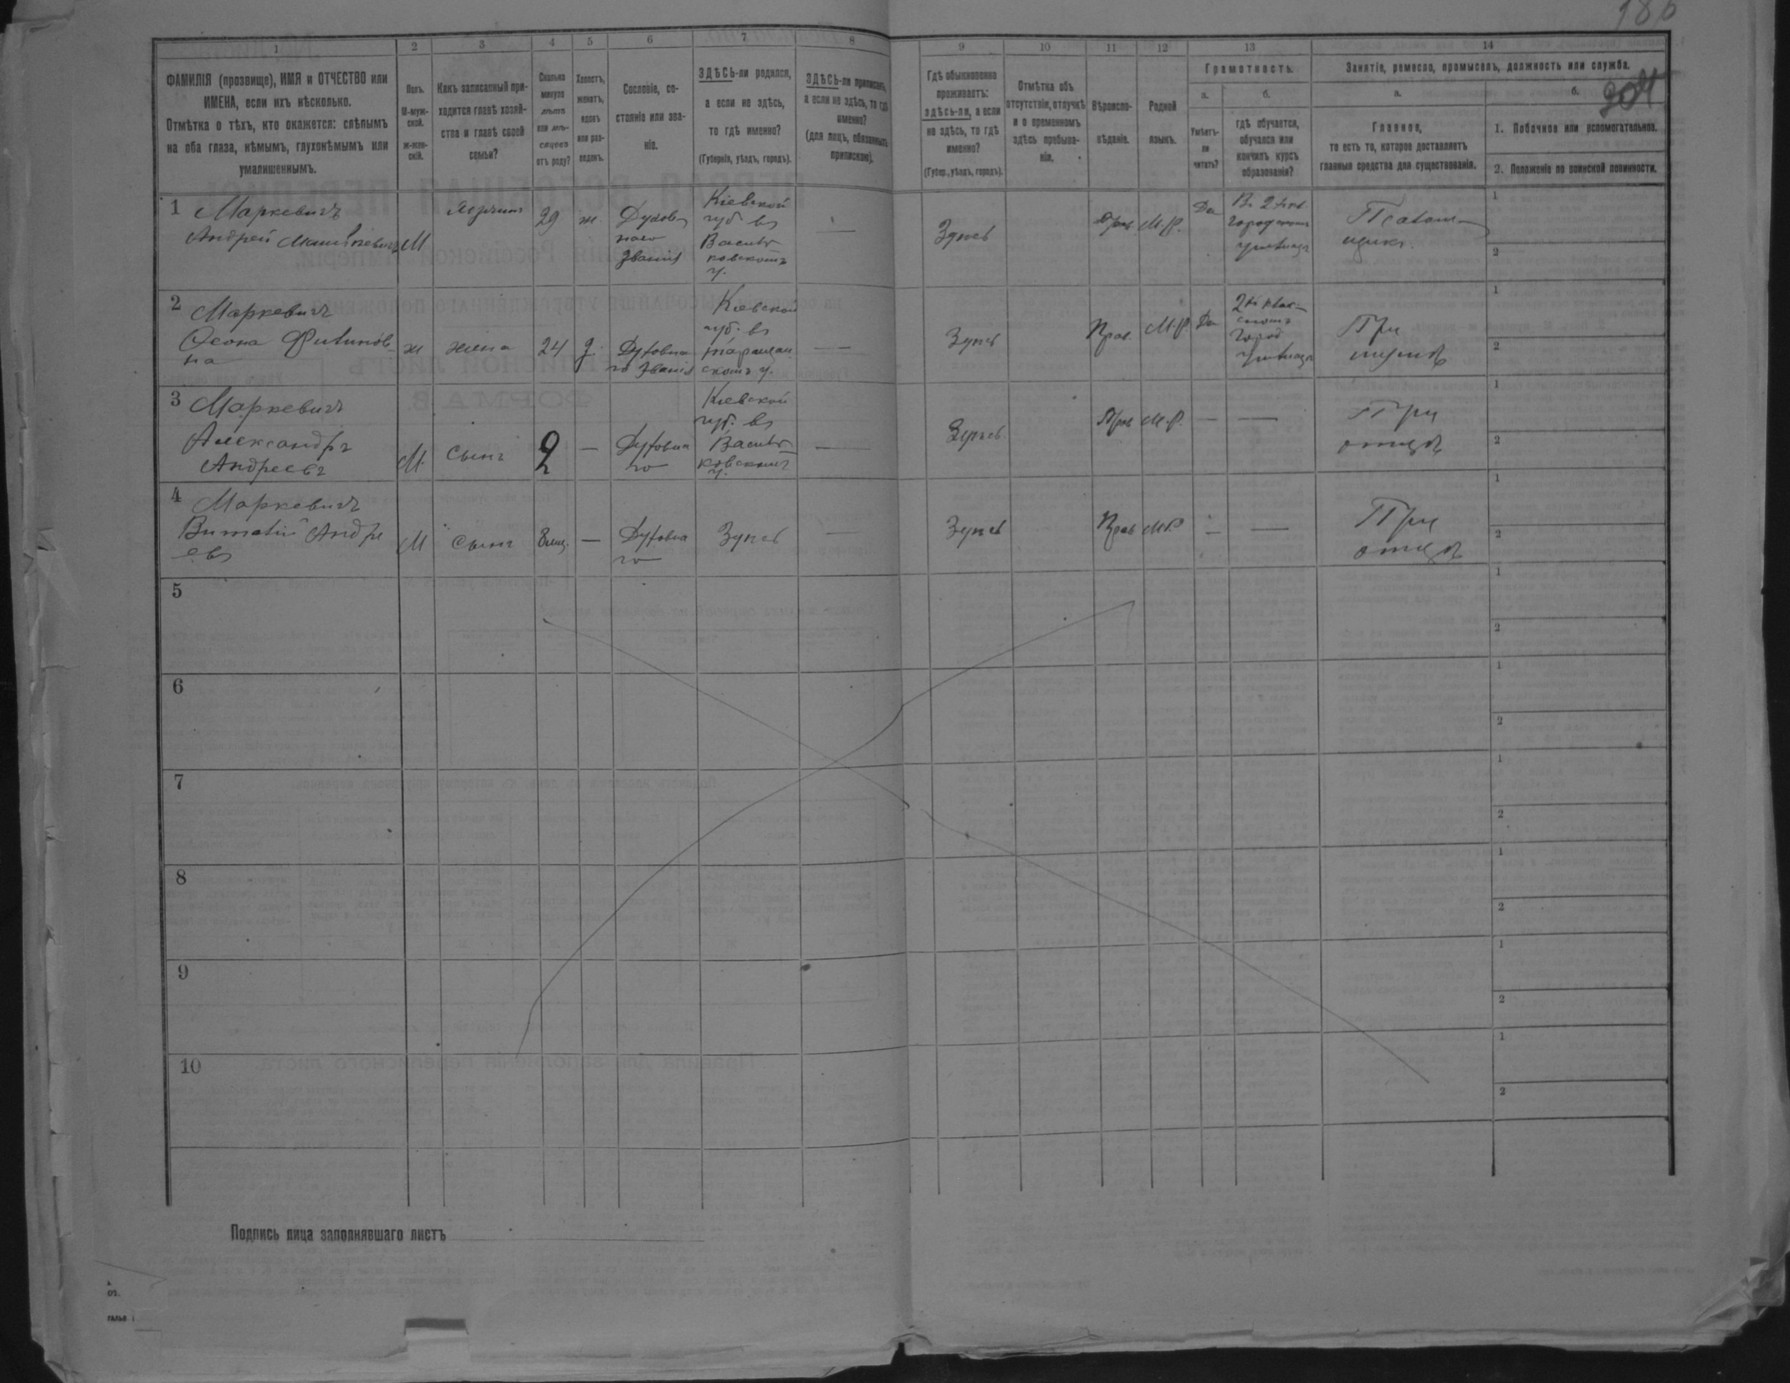 186
304
1 2 3 4 5 6 7 8 9 10 11 12 13 14
ФАМИЛІЯ (прозвище), ИМЯ и ОТЧЕСТВО или
ИМЕНА, если ихъ нѣсколько.
Отмѣтка о тѣхъ, кто окажется: слѣпымъ
на оба глаза, нѣмымъ, глухонѣмымъ или
умалишеннымъ.
Полъ.
М-муж-
ской.
Ж-жен-
скій.
Какъ записанный при-
ходится главѣ хозяй-
ства и главѣ своей
семьи?
Сколько
минуло
лѣтъ
или мѣ-
сяцевъ
отъ роду?
Холостъ,
женатъ,
вдовъ
или раз-
веденъ.
Сословіе, со-
стояніе или зва-
ніе.
ЗДѢСЬ-ли родился,
а если не здѣсь,
то гдѣ именно?
(Губернія, уѣздъ, городъ).
ЗДѢСЬ-ли приписанъ,
а если не здѣсь, то гдѣ
именно?
(для лицъ, обязанныхъ
припискою).
Гдѣ обыкновенно
проживаетъ:
здѣсь-ли, а если
не здѣсь, то гдѣ
именно?
(Губер., уѣздъ, городъ).
Отмѣтка объ
отсутствіи, отлучкѣ
и о временномъ
здѣсь пребыва-
ніи.
Вѣроиспо-
вѣданіе.
Родной
языкъ.
Грамотность.
а.
Умѣетъ-
ли
читать?
б.
гдѣ обучается,
обучался или
кончилъ курсъ
образованія?
Занятіе, ремесло, промыселъ, должность или служба.
а.
Главное,
то есть то, которое доставляетъ
главныя средства для существованія.
б.
1. Побочное или вспомогательное.
2. Положеніе по воинской повинности.
1 Маркевичъ
Андрей
М
29
ж.
Духов
наго
званія
Кіевской
губ. въ
Василь
ковскомъ
у.
—
Здѣсь
Прав. М.Р. Да
В 2хкл
городском
училищѣ
1
2
2 Маркевичъ
ж жена 24 Духовна
го званія
Кіевской
губ. въ
Таращан
скомъ у.
—
Здѣсь
Прав. М.Р. Да
2хклас
сномъ
город
училищѣ
При
мужѣ
1
2
3 Маркевичъ
Александръ
Андреевъ
М. сынъ 2 — Духовна
го
Кіевской
губ. въ
Василь
ковскомъ
у.
—
Здѣсь
Прав М.Р. — —
При
отцѣ
1
2
4 Маркевичъ
Виталій Андре
евъ
М сынъ 8 мц. — Духовна
го
Здѣсь — Здѣсь
Прав М.Р. — —
При
отцѣ
1
2
5 1
2
6 1
2
7 1
2
8 1
2
9 1
2
10 1
2
Подпись лица заполнявшаго листъ